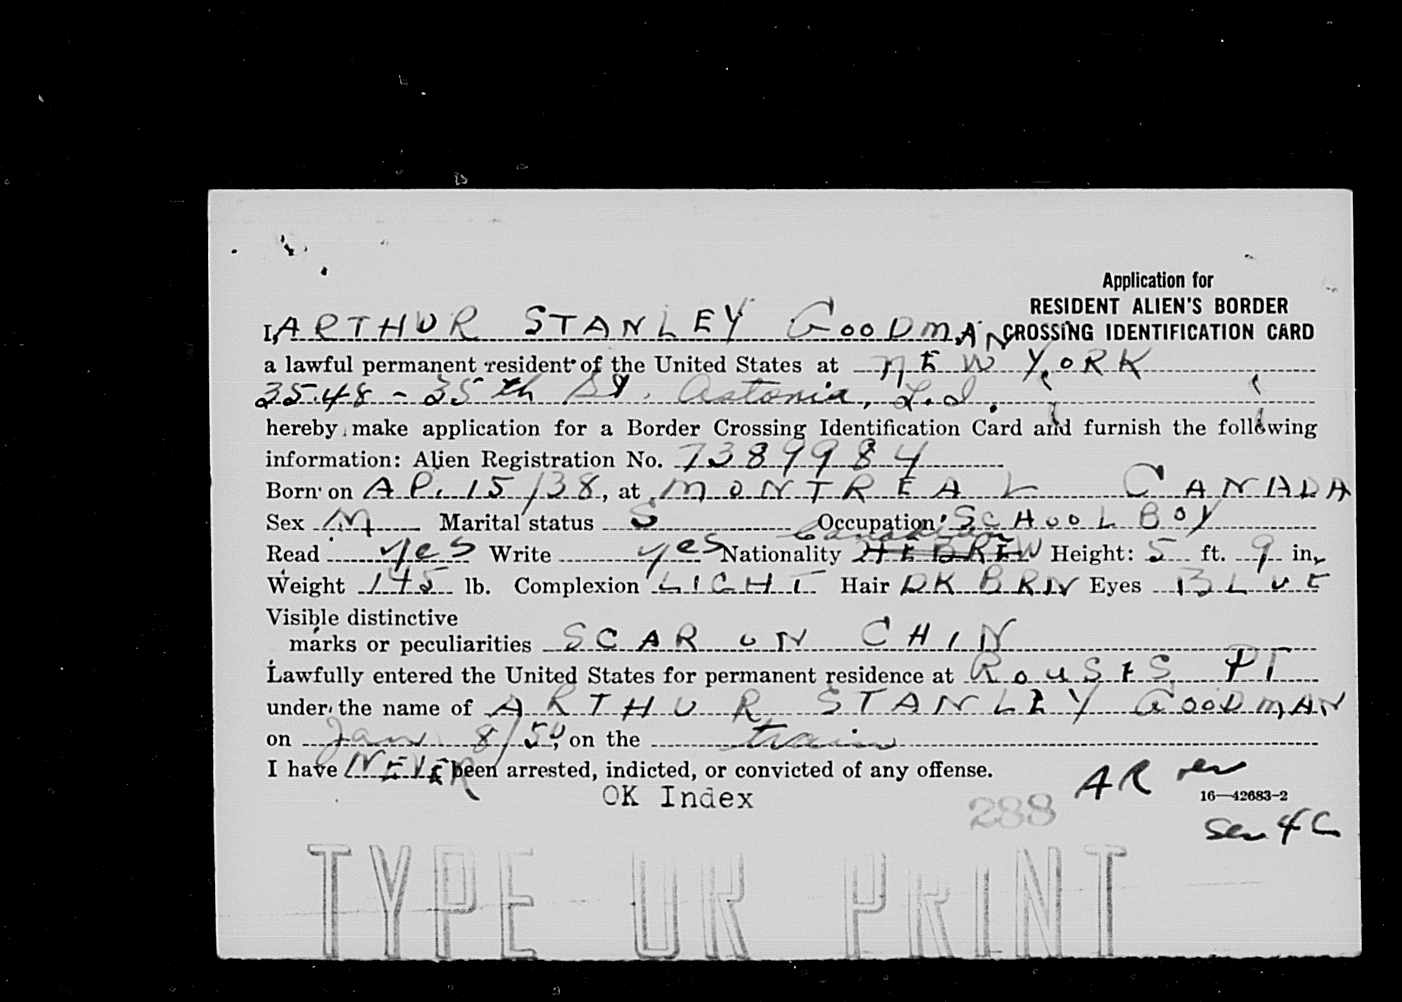 Application for
RESIDENT ALIEN'S BORDER
CROSSING IDENTIFICATION CARD
I, ARTHUR STANLEY GOODMAN
a lawful permanent resident of the United States at NEW YORK
35.48 - 35th St. Astoria, L.I.
hereby make application for a Border Crossing Identification Card and furnish the following
information: Alien Registration No. 7389984
Born on AP. 15/38, at MONTREAL CANADA
Sex M Marital status S Occupation SCHOOL BOY
Canadian
Read yes Write yes Nationality HEBREW Height: 5 ft. 9 in.
Weight 145 lb. Complexion LIGHT Hair DK BRN Eyes BLUE
Visible distinctive
marks or peculiarities SCAR ON CHIN
Lawfully entered the United States for permanent residence at ROUSES PT
under the name of ARTHUR STANLEY GOODMAN
on Jan. 8/50, on the train
I have NEVER been arrested, indicted, or convicted of any offense.
OK Index 288 AR 16—42683-2
TYPE OR PRINT